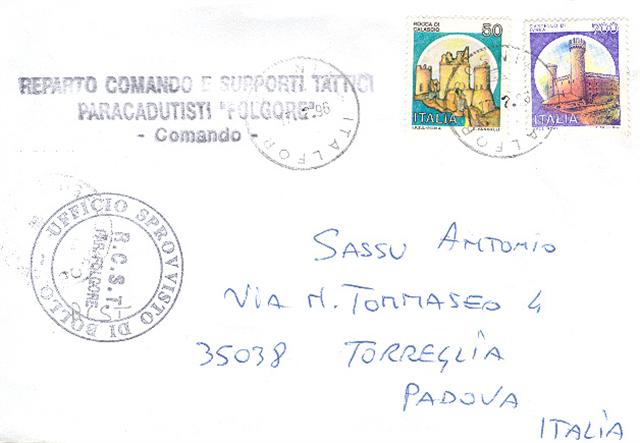 ROCCA DI
CALASCIO
50
ITALIA
CASTELLO DI
IVREA
ITALIA
REPARTO COMANDO E SUPPORTI TATTICI
PARACADUTISTI "FOLGORE"
- Comando -
ITALFOR
UFFICIO SPROVVISTO DI BOLLO
R.C.S.T.
PAR. FOLGORE
SASSU ANTONIO
VIA N. TOMMASEO 4
35038 TORREGLIA
PADOVA
ITALIA